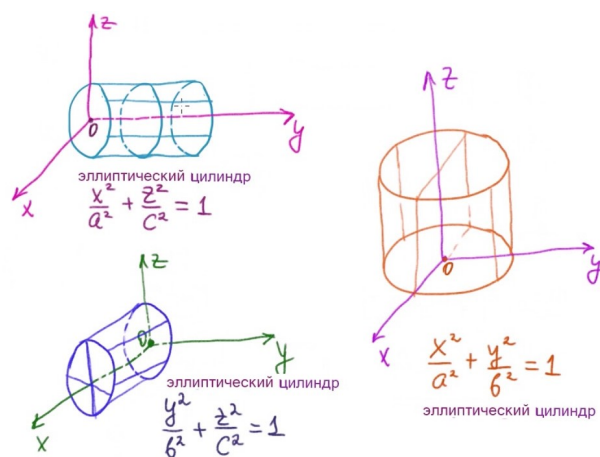 z
O
y
x
эллиптический цилиндр
x²/a² + z²/c² = 1
z
O
y
x
эллиптический цилиндр
y²/б² + z²/c² = 1
z
O
y
x
x²/a² + y²/б² = 1
эллиптический цилиндр